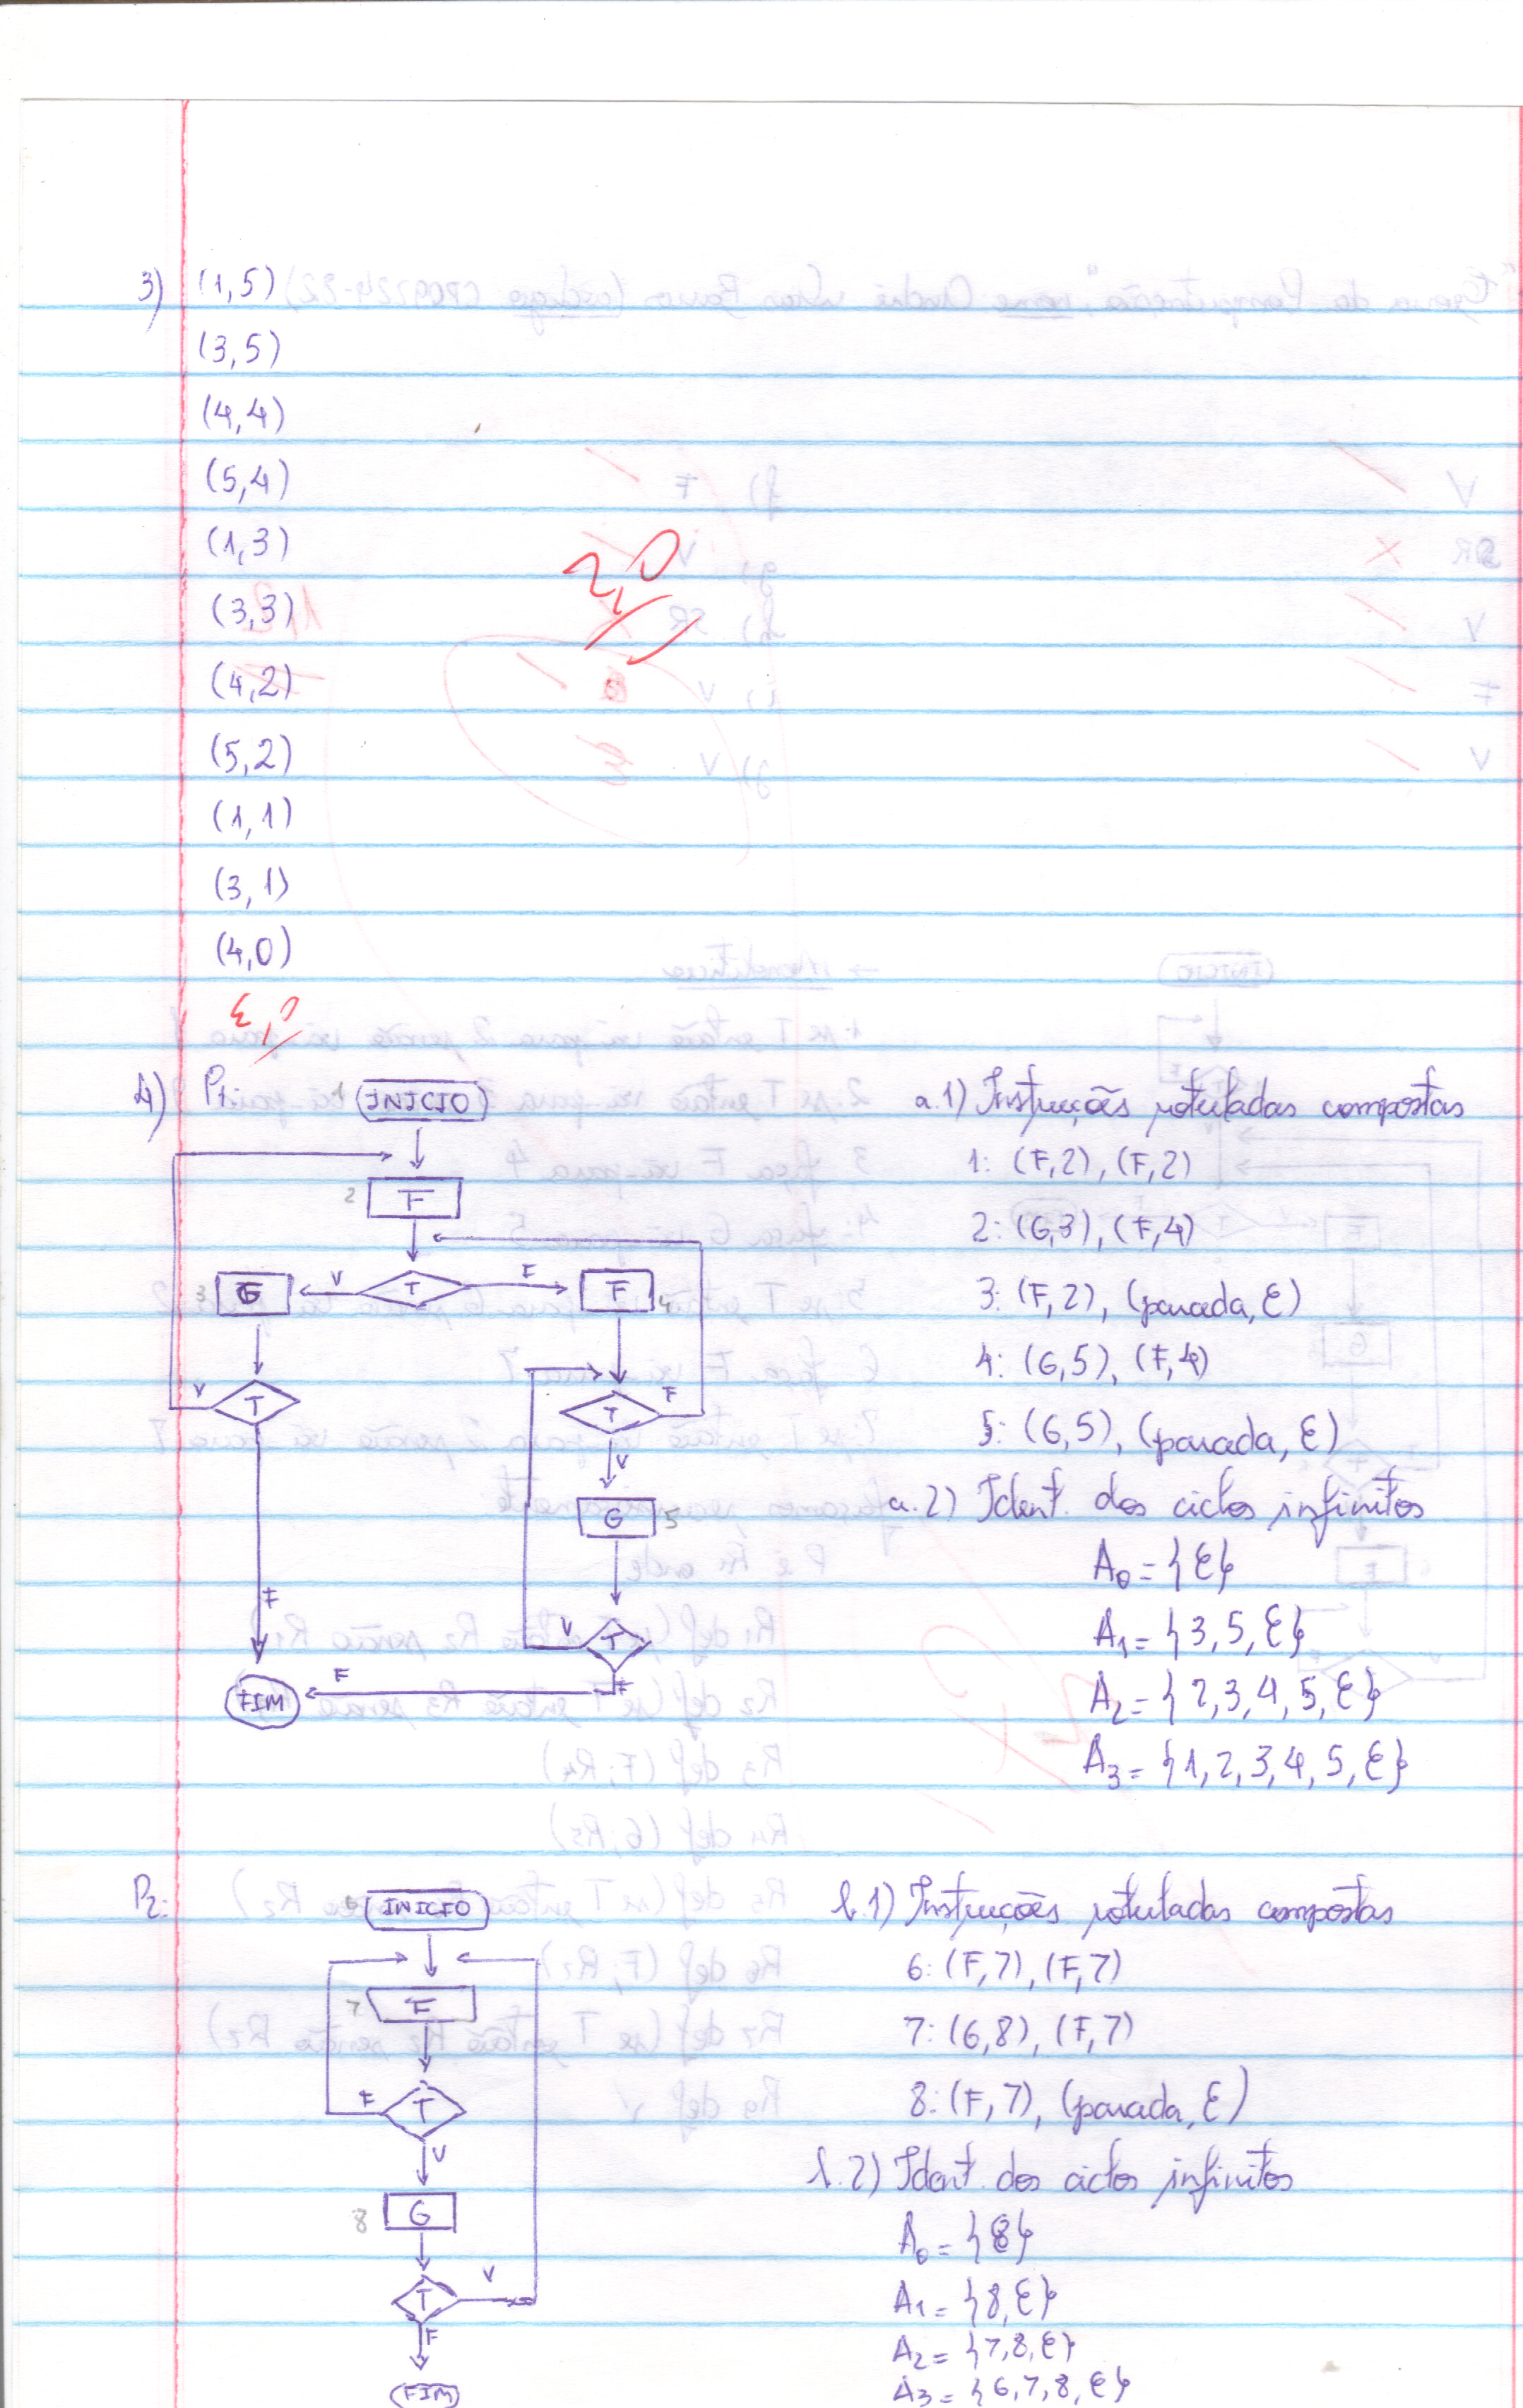 3) (1,5)
(3,5)
(4,4)
(5,4)
(1,3)
(3,3)
(4,2)
(5,2)
(1,1)
(3,1)
(4,0)
4) P1:
1 INICIO
2 F
3 G V T F F 4
V T T F
V
G 5
F V T
F F
FIM
a.1) Instruções rotuladas compostas
1: (F,2), (F,2)
2: (G,3), (F,4)
3: (F,2), (parada, ε)
4: (G,5), (F,4)
5: (G,5), (parada, ε)
a.2) Ident. dos ciclos infinitos
A0 = {ε}
A1 = {3, 5, ε}
A2 = {2, 3, 4, 5, ε}
A3 = {1, 2, 3, 4, 5, ε}
P2:
6 INICIO
7 F
F T
V
8 G
T V
F
FIM
b.1) Instruções rotuladas compostas
6: (F,7), (F,7)
7: (G,8), (F,7)
8: (F,7), (parada, ε)
b.2) Ident. dos ciclos infinitos
A0 = {ε}
A1 = {8, ε}
A2 = {7, 8, ε}
A3 = {6, 7, 8, ε}